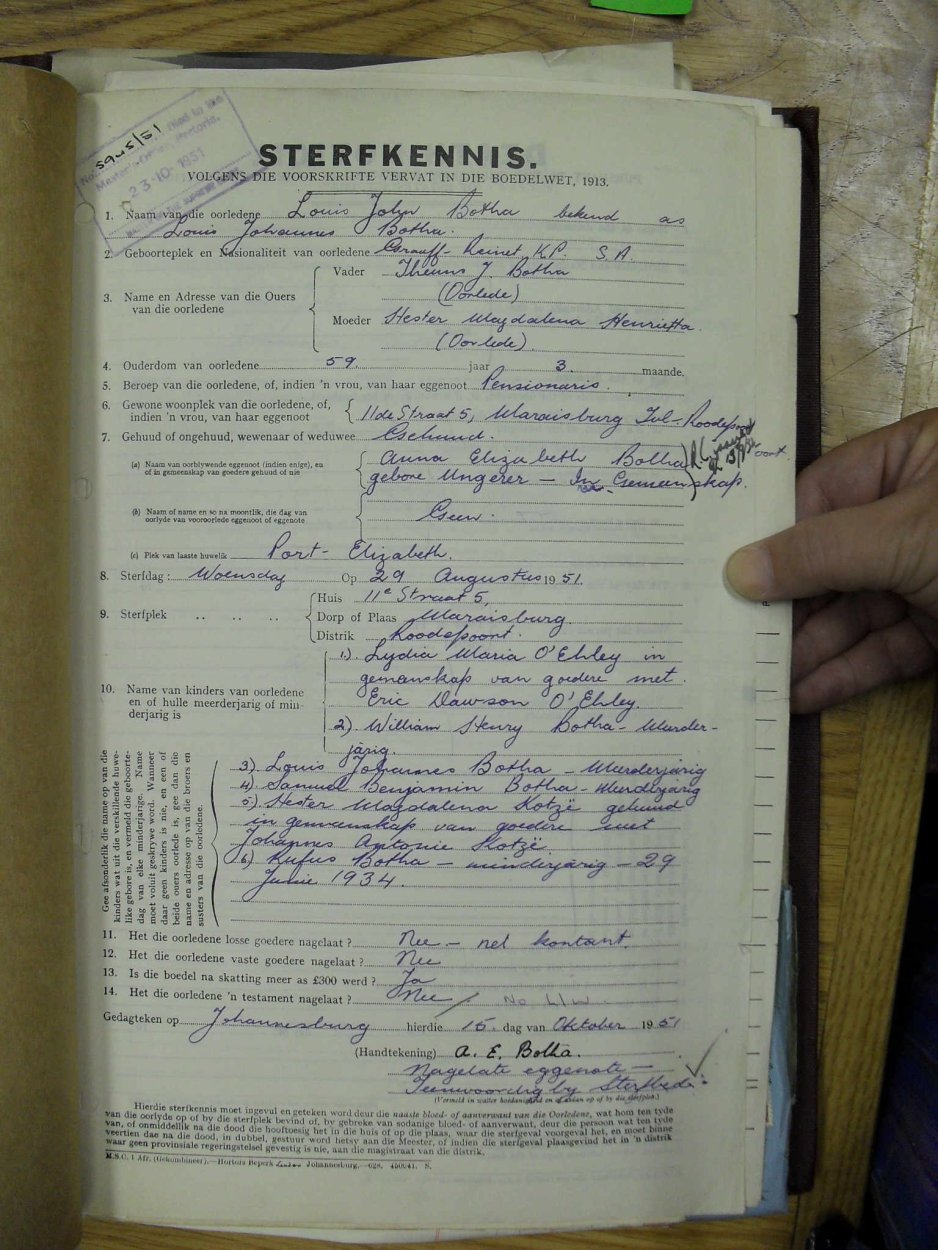 5945/51
Filed in the
Master's Office, Pretoria.
23-10-1951
STERFKENNIS.
VOLGENS DIE VOORSKRIFTE VERVAT IN DIE BOEDELWET, 1913.
1. Naam van die oorledene Louis John Botha bekend as
Louis Johannes Botha.
2. Geboorteplek en Nasionaliteit van oorledene Graaff-Reinet K.P. S.A.
3. Name en Adresse van die Ouers van die oorledene
Vader Theuns J. Botha
(Oorlede)
Moeder Hester Magdalena Henrietta
(Oorlede).
4. Ouderdom van oorledene 59. jaar 3. maande.
5. Beroep van die oorledene, of, indien 'n vrou, van haar eggenoot Pensionaris.
6. Gewone woonplek van die oorledene, of,
indien 'n vrou, van haar eggenoot 11de Straat 5, Maraisburg Tvl-Roodepoort
7. Gehuud of ongehuud, wewenaar of weduwee Gehuud.
(a) Naam van oorblywende eggenoot (indien enige), en
of in gemeenskap van goedere gehuud of nie
Anna Elizabeth Botha
gebore Ungerer - In Gemeenskap.
(b) Naam of name en so na moontlik, die dag van
oorlyde van vooroorlede eggenoot of eggenote
Geen.
(c) Plek van laaste huwelik Port-Elizabeth.
8. Sterfdag: Woensdag Op 29 Augustus 1951.
9. Sterfplek
Huis 11e Straat 5,
Dorp of Plaas Maraisburg
Distrik Roodepoort.
10. Name van kinders van oorledene
en of hulle meerderjarig of min-
derjarig is
1). Lydia Maria O'Ehley in
gemenskap van goedere met.
Eric Dawson O'Ehley.
2). William Henry Botha - Meerder-
jarig.
3). Louis Johannes Botha - Meerderjarig
4). Samuel Benjamin Botha - Meerderjarig
5). Hester Magdalena Kotzë gehuud
in gemeenskap van goedere met
Johannes Antonie Kotzë.
6). Rufus Botha - minderjarig - 29
Junie 1934.
Gee afsonderlik die name op van die
kinders wat uit die verskillende huwe-
like gebore is, en vermeld die geboorte-
dag van elke minderjarige. Name
moet voluit geskrywe word. Wanneer
daar geen kinders is nie, en een of
beide ouers oorlede is, gee dan die
name en adresse op van die broers en
susters van die oorledene.
11. Het die oorledene losse goedere nagelaat? Nee - net kontant.
12. Het die oorledene vaste goedere nagelaat? Nee
13. Is die boedel na skatting meer as £300 werd? Ja
14. Het die oorledene 'n testament nagelaat? Nee / No L/W.
Gedagteken op Johannesburg hierdie 15. dag van Oktober 1951
(Handtekening) A. E. Botha.
Nagelate eggenote -
Teenwoordig by Sterfbed.
(Vermeld in watter hoedanigheid en of dan op of by die sterfplek.)
Hierdie sterfkennis moet ingevul en geteken word deur die naaste bloed- of aanverwant van die Oorledene, wat hom ten tyde
van die oorlyde op of by die sterfplek bevind of, by gebreke van sodanige bloed- of aanverwant, deur die persoon wat ten tyde
van, of onmiddellik na die dood die hooftoesig het in die huis of op die plaas, waar die sterfgeval voorgeval het, en moet binne
veertien dae na die dood, in dubbel, gestuur word hetsy aan die Meester, of indien die sterfgeval plaasgevind het in 'n distrik
waar geen provinsiale regeringstelsel gevestig is nie, aan die magistraat van die distrik.
M.S.C. 1 Afr. (Gekombineer).—Hortors Beperk Johannesburg.—628. S.